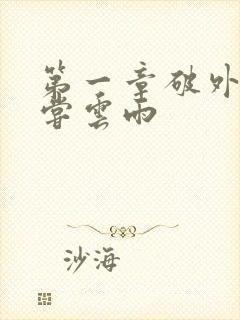 第一章破外
尝云雨
沙海